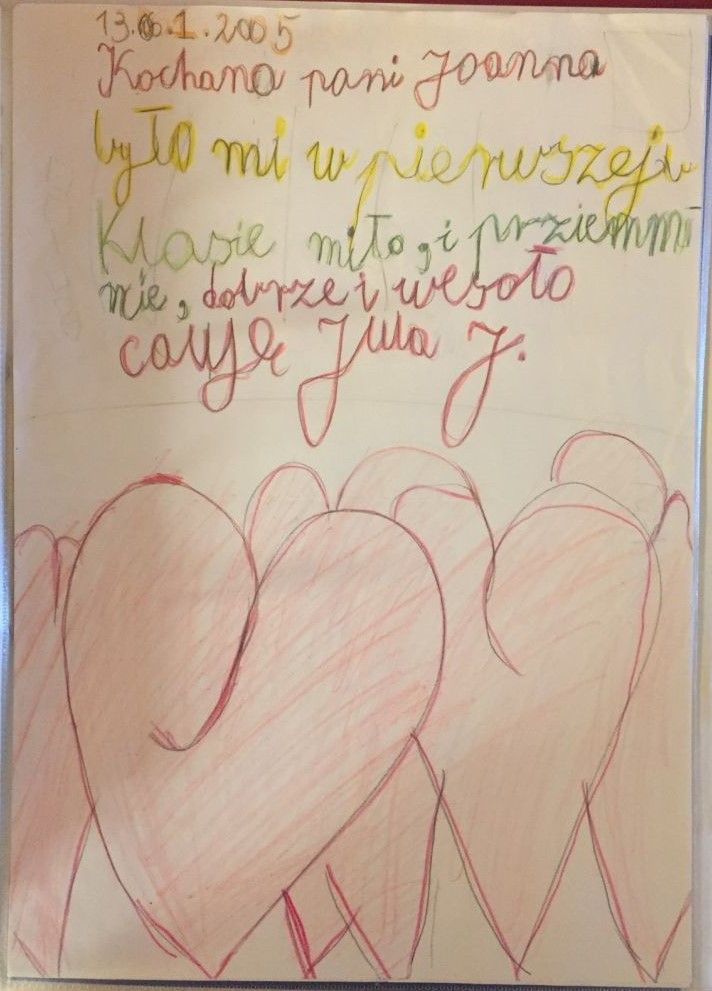 13.06.1.2005
Kochana pani Joanna
było mi w pierwszeju
klasie miło, i prziemmi
nie, dobrze i wesoło
całuję Jula J.